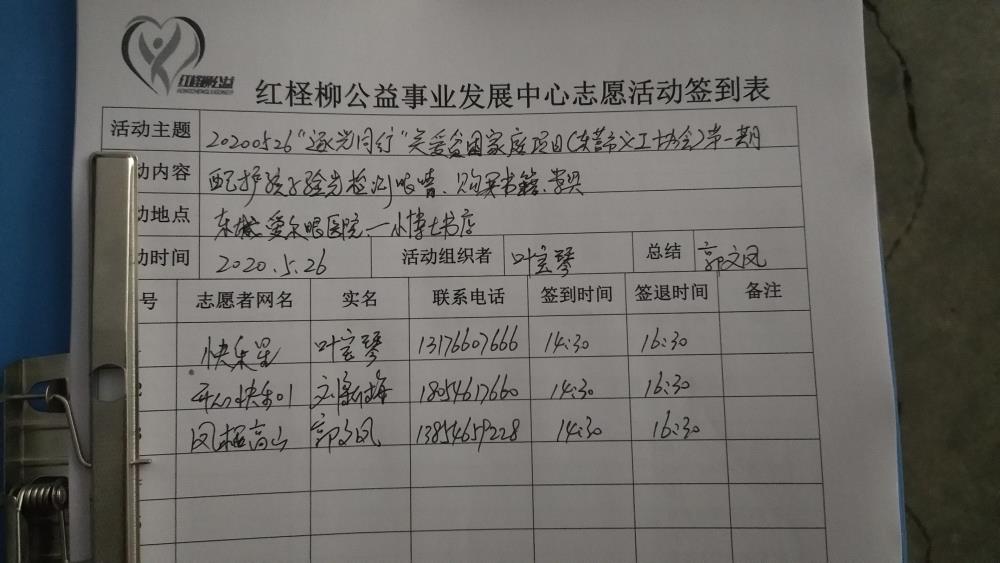 红柽柳公益
红柽柳公益事业发展中心志愿活动签到表
活动主题 20200526“逐光同行”关爱贫困家庭项目(东营市义工协会)第一期
动内容 配护孩子验光检测眼睛、购买书籍、学具
动地点 东城爱尔眼医院—小博士书店
动时间 2020.5.26 活动组织者 叶宝琴 总结 郭文凤
号 志愿者网名 实名 联系电话 签到时间 签退时间 备注
快乐星 叶宝琴 13176607666 14:30 16:30
2 开心快乐01 18054617660 14:30 16:30
3 凤栖高山 郭文凤 13854659228 14:30 16:30